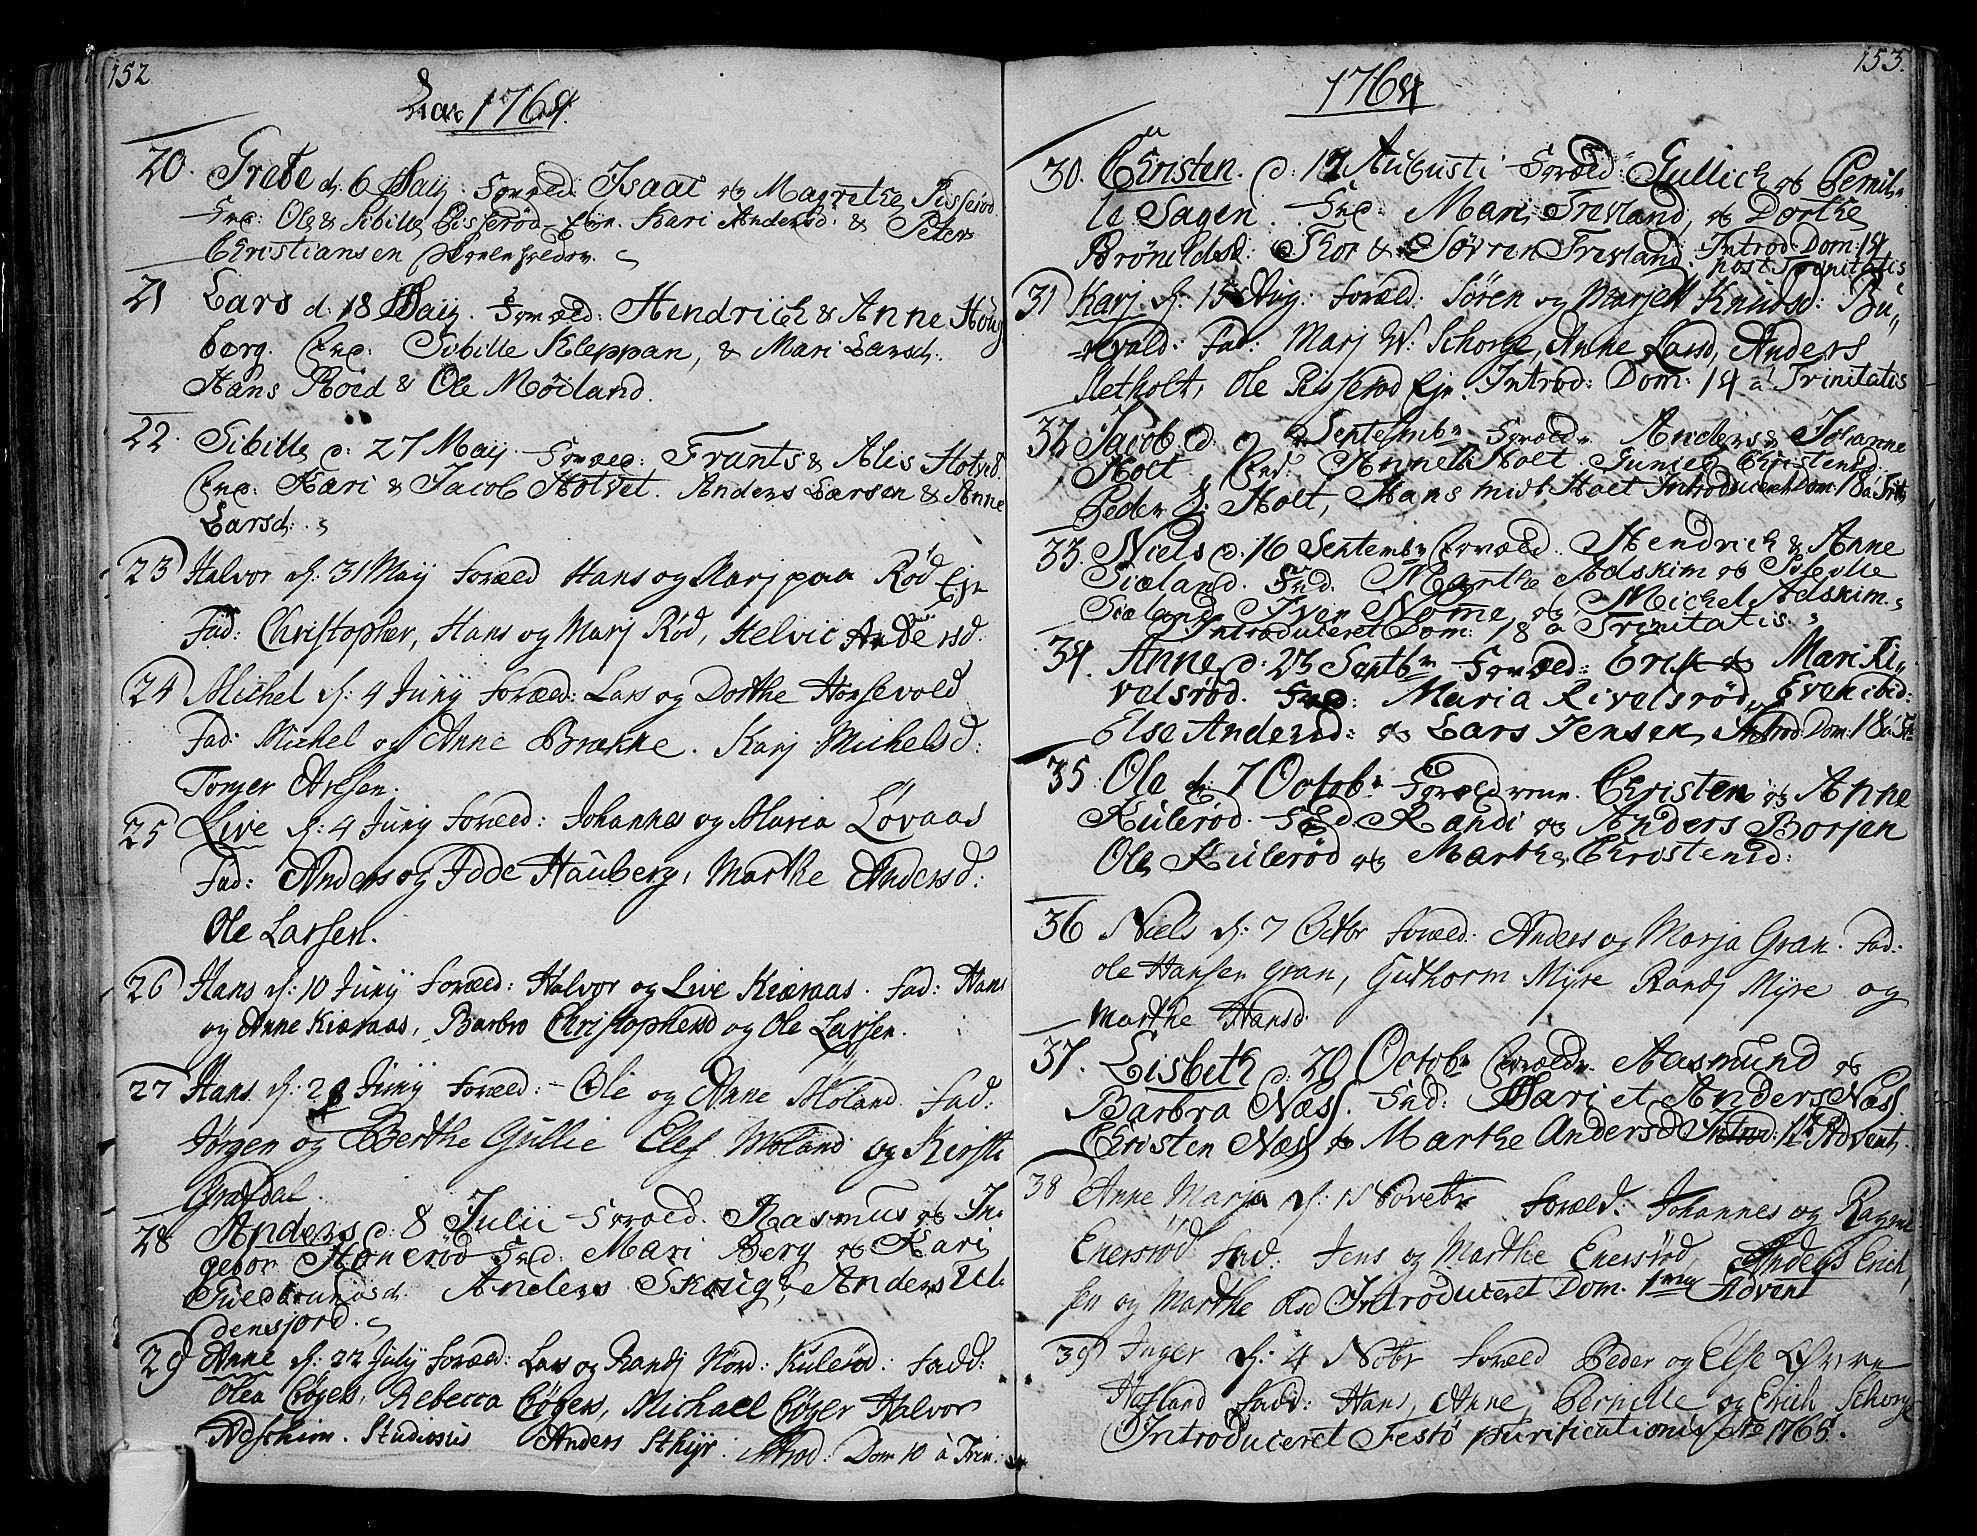 152
Aar 1764.
20. Grete d. 6 Maij. Foræld: Isaac og Magrethe Pisserød.
Fad: Ole & Sibille Pisserød Ejn. Kari Andersd: & Peter
Christiansen
21 Lars d. 18 Maij. Foræld: Hendrich & Anne Houg
berg. Fad: Sibille Kleppan, & Mari Larsd:
Hans Röed & Ole Möiland.
22. Sibille d: 27 Maij Foræld: Frants & Alis Hotvet.
Fad: Kari & Jacob Hotvet. Anders Larsen & Anne
Larsd:
23 Halvor d: 31 Maij Foræld Hans og Marj paa Rød Ejn
Fad: Christopher, Hans og Marj Rød, Helvic Andersd.
24 Michel d: 4 Junij foræld: Lars og Dorthe Horsevold
Fad: Michel og Anne Brække. Karj Michelsd:
Torger Arsen.
25 Live d: 4 Junij foræld: Johannes og Maria Løvaas
Fad: Anders og Adde Hauberg, Marthe Andersd:
Ole Larsen.
26 Hans d: 10 Junij foræld: Halvor og Live Kiæraas. Fad: Hans
og Anne Kiæraas, Barbro Christophersd og Ole Larsen.
27 Hans d: 28 Junij foræld: Ole og Anne Moland. Fad:
Jørgen og Berthe Gullie Elef Moland og Kirsti
Græsdal.
28 Anders d. 8 Julii Foræld. Rasmus og In,
gebor Hanerød Fad: Mari Berg og Kari
Guldbrandsd. Anders Skoug, Anders Ul,
densjord.
29 Anne d: 22 Julij foræld: Lars og Randj Nord: Kulerød: Fadd:
Olea Bøgers, Rebecca Bøgers, Michael Bøger Halvor
Adschim. Studiosus Anders Sthyr. Introd: Dom 10 à Trin:
153.
1764
30. Christen. d: 12 Augusti Foræld: Gullich og Pernil,
le Sagen. Fad: Mari Trevland, og Dorthe
Brönildsd: Thor & Søvren Trevland. Introd: Dom: 14
post Trinitatis
31 Karj d: 15 Aug: foræld: Søren og Marjett Knudsd: Bu,
revald: Fad: Marj W: Schorge, Anne Larsd, Anders
Sletholt, Ole Pisserød Ejn. Introd: Dom: 14 a Trinitatis
32 Jacob d: 9 Septembr Foræld. Anders & Johanne
Holt Fad: Anne Holt Guniel Christensd.
Peder Holt, Hans midt Holt Introduceret Dom: 18 a Trin
33. Niels d. 16 Septembr Foræld. Hendrich & Anne
Siæland. Fad. Marthe Adskim og Sibille
Siæland, Iver Nome og Michel Adskim.
Introduceret Dom: 18 a Trinitatis.
34. Anne d: 23 Septbr Foræld: Erik og Mari Ri,
valsrød. Fad: Maria Rivalsrød, Even ibid:
Else Andersd: og Lars Jensen, Introd: Dom: 18 a Tr:
35. Ole d: 7 Octobr Forældrene. Christen og Anne
Kulerød. Fad. Randi og Anders Borjen
Ole Kulerød og Marthe Christensd:
36 Niels d: 7 Octbr foræld: Anders og Marja Gran. Fad:
Ole Hansen Gran, Guthorm Myre Randj Myre og
Marthe Hansd.
37. Lisbeth d: 20 Octobr Foræld. Aasmund og
Barbra Næss. Fad: Mari et Anders Næss
Christen Næss og Marthe Andersd Introd: 1te Advent.
38 Anne Marja d: 1 Novebr foræld: Johannes og Ragne
Enersrød Fad: Jens og Marthe Enersrød, Anders Erich,
sen og Marthe Introduceret Dom. 1ma Advent
39 Inger d: 4 Nvbr foræld Peder og Else Øvre
Hafland Fadd: Hans, Anne, Pernille og Erich Schorge
Introduceret Festo purificationis Ao 1765.